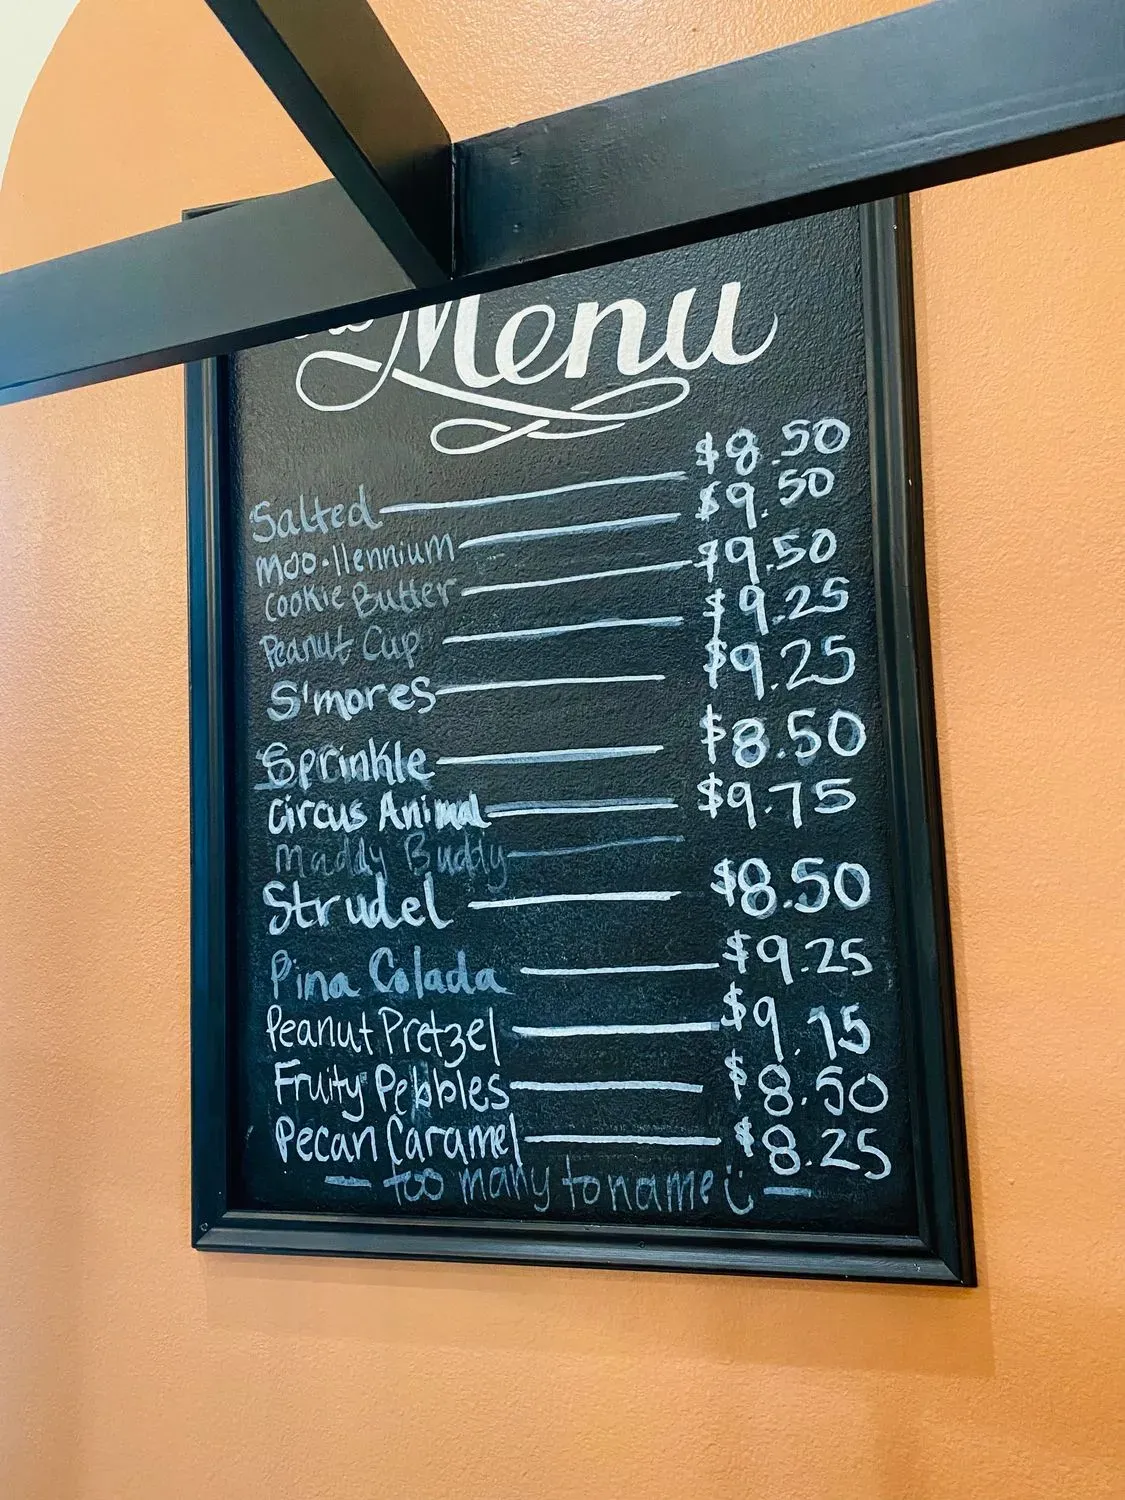 Menu
Salted $8.50
Moo-llennium $9.50
Cookie Butter $9.50
Peanut Cup $9.25
S'mores $9.25
Sprinkle $8.50
Circus Animal $9.75
Maddy Buddy
Strudel $8.50
Pina Colada $9.25
Peanut Pretzel $9.75
Fruity Pebbles $8.50
Pecan Caramel $8.25
— too many to name —